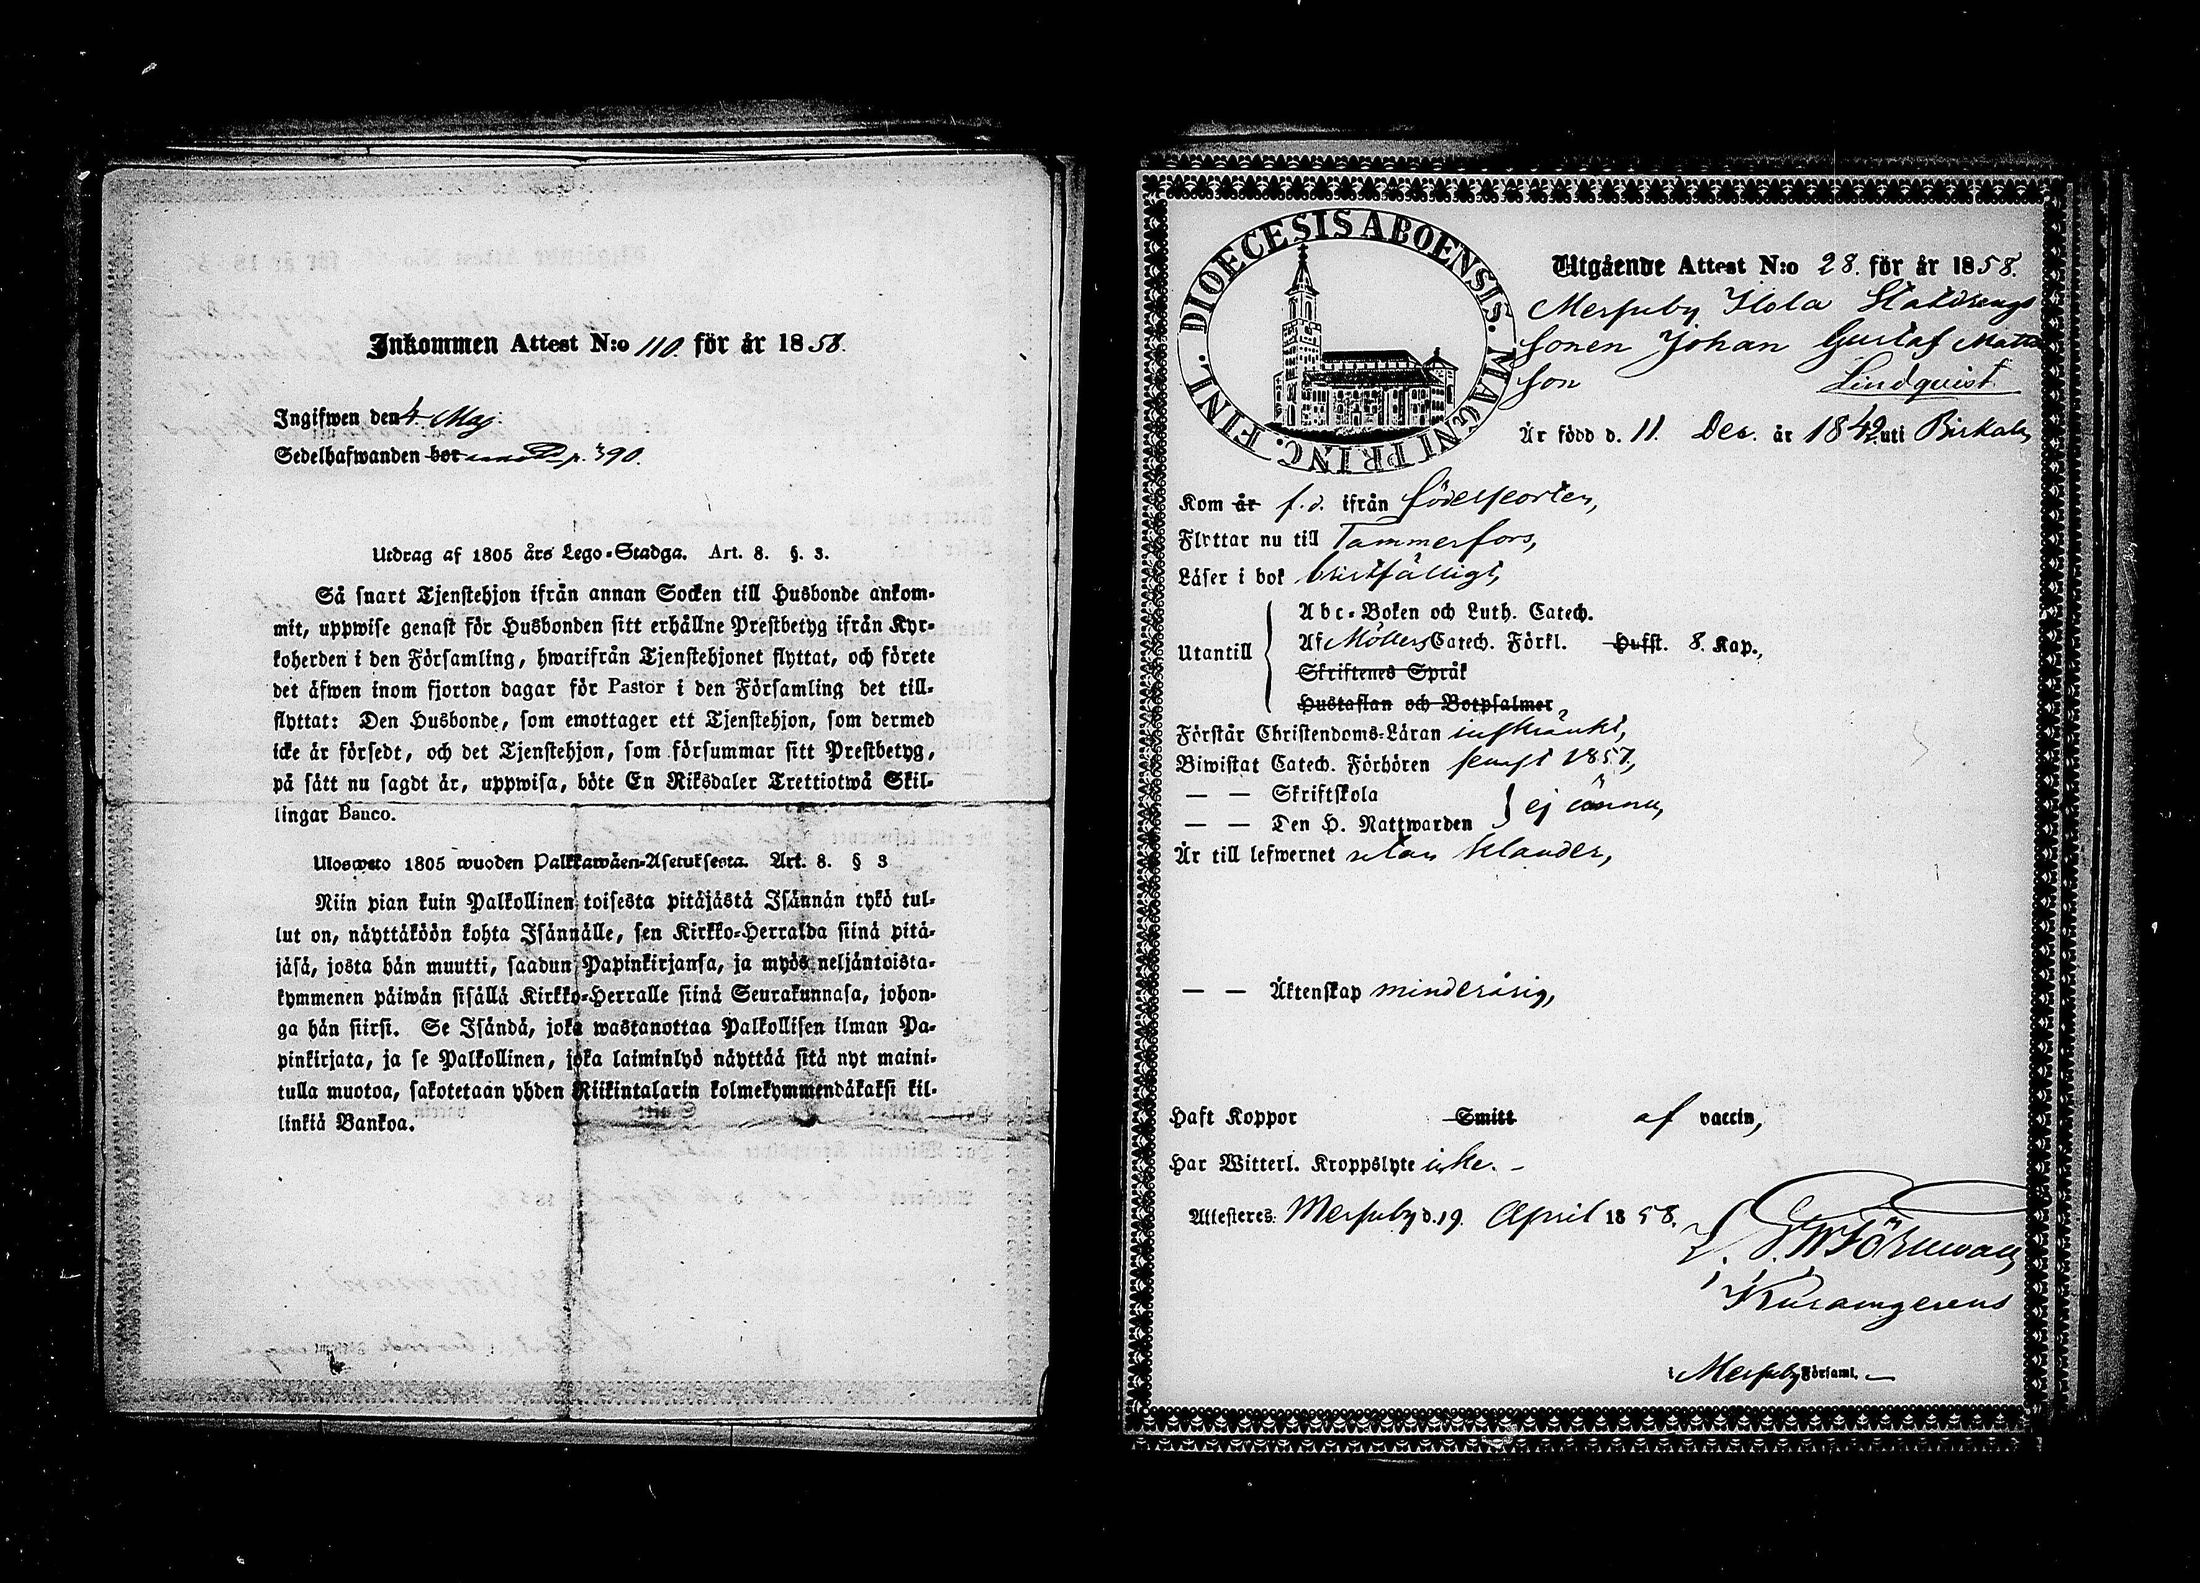 Inkommen Attest N:o 110. för år 1858.
Ingifwen den 4. Maj.
Sedelhafwanden bor p. 390.
Utdrag af 1805 års Lego-Stadga. Art. 8. §. 3.
Så snart Tjenstehjon ifrån annan Socken till Husbonde ankom-
mit, uppwise genast för Husbonden sitt erhållne Prestbetyg ifrån Kyr-
koherden i den Församling, hwarifrån Tjenstehjonet flyttat, och förete
det äfwen inom fjorton dagar för Pastor i den Församling det till-
flyttat: Den Husbonde, som emottager ett Tjenstehjon, som dermed
icke är försedt, och det Tjenstehjon, som försummar sitt Prestbetyg,
på sätt nu sagdt är, uppwisa, böte En Riksdaler Trettiotwå Skil-
lingar Banco.
Ulosweto 1805 wuoden Palkkawäen-Asetuksesta. Art. 8. § 3
Niin pian kuin Palkollinen toisesta pitäjästä Isännän tykö tul-
lut on, näyttäköön kohta Isännälle, sen Kirkko-Herralda siinä pitä-
jäsä, josta hän muutti, saadun Papinkirjansa, ja myös neljäntoista-
kymmenen päiwän sisällä Kirkko-Herralle siinä Seurakunnasa, johon-
ga hän siirsi. Se Isändä, joka wastanottaa Palkollisen ilman Pa-
pinkirjata, ja se Palkollinen, joka laiminlyö näyttää sitä nyt maini-
tulla muotoa, sakotetaan yhden Riikintalarin kolmekymmendäkaksi kil-
linkiä Bankoa.
FINL. DIOECESIS ABOENSIS. MAGNI PRINC.
Utgående Attest N:o 28. för år 1858.
Messuby Ilola Statdrengs
sonen Johan Gustaf Matts
son Lindquist
Är född d. 11. Dec. år 1842 uti Birkala
Kom år f. d. ifrån födelseorten,
Flyttar nu till Tammerfors,
Läser i bok bristfälligt,
Utantill
Abc-Boken och Luth. Catech.
Af Möllers Catech. Förkl. Hufst. 8. Kap.,
Skriftenes Språk
Hustaflan och Botpsalmer
Förstår Christendoms-Läran inskränkt,
Biwistat Catech. Förhören senast 1857,
— — Skriftskola
— — Den H. Nattwarden ej ännu,
Är till lefwernet utan klander,
— — Äktenskap minderårig,
Haft Koppor Smitt af vaccin,
Har Witterl. Kroppslyte icke. –
Attesteres: Messuby d. 19. April 1858.
i Messuby Församl. –